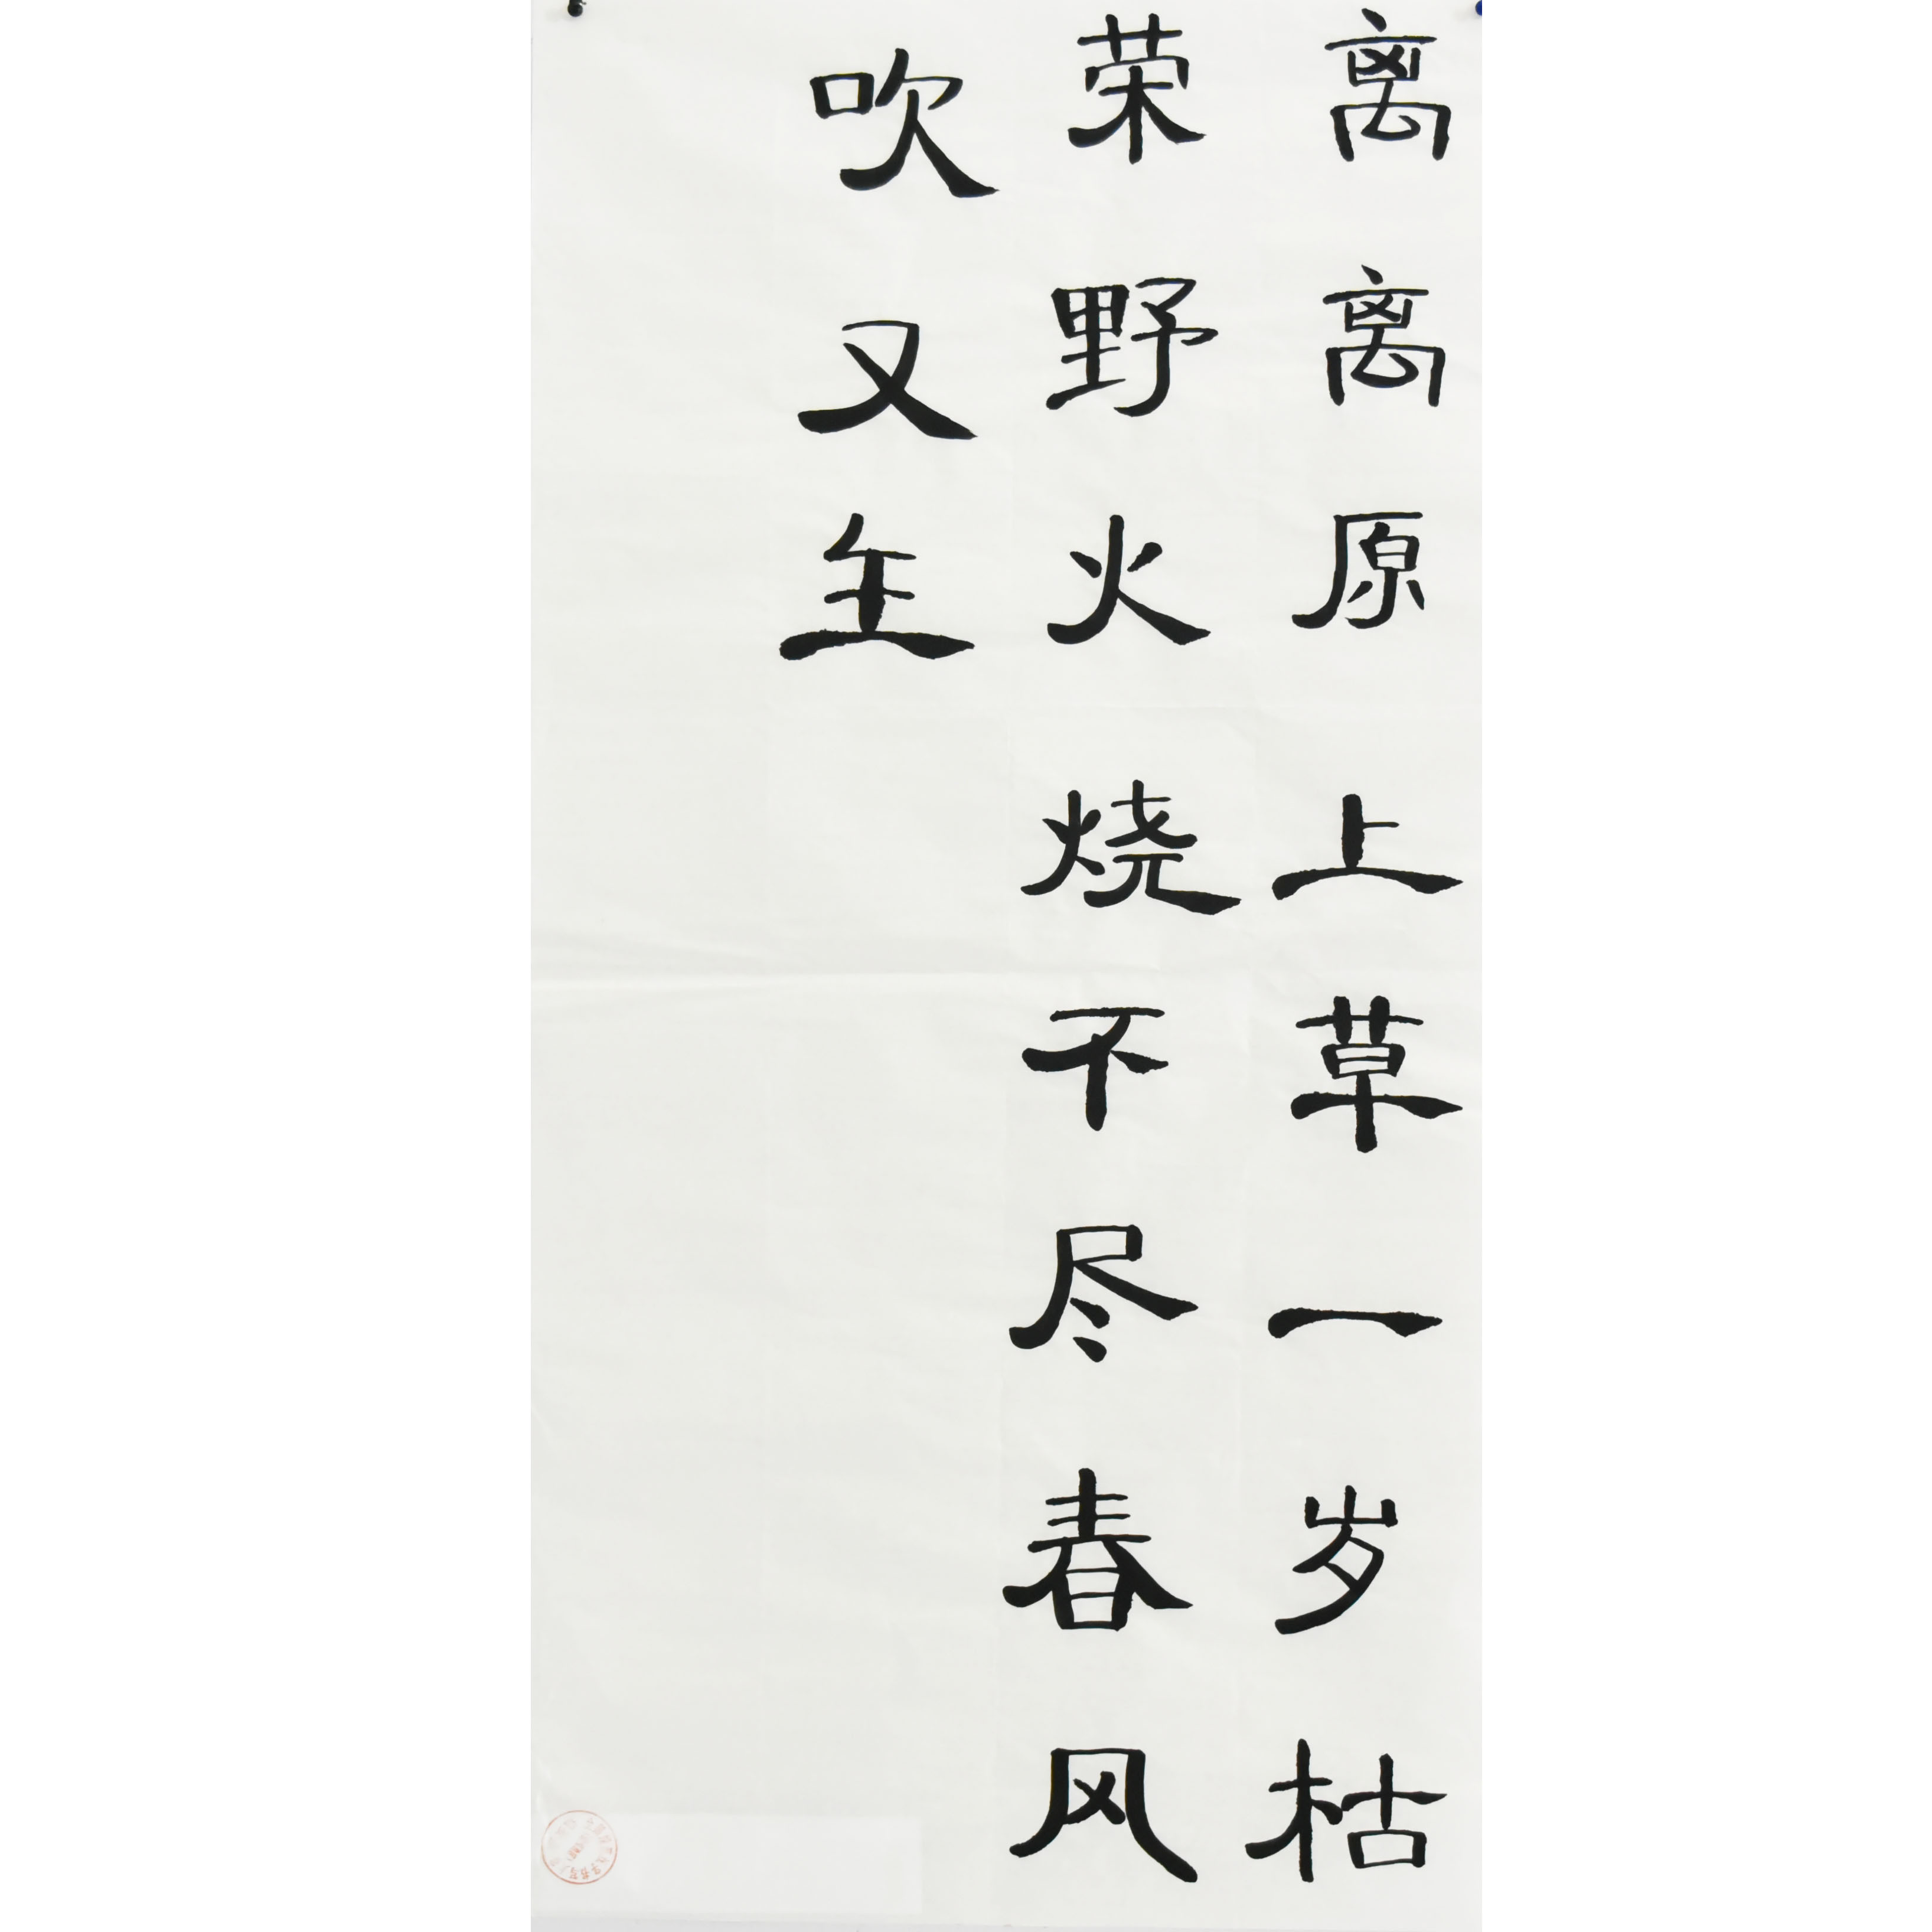 离离原上草一岁枯
荣野火烧不尽春风
吹又生